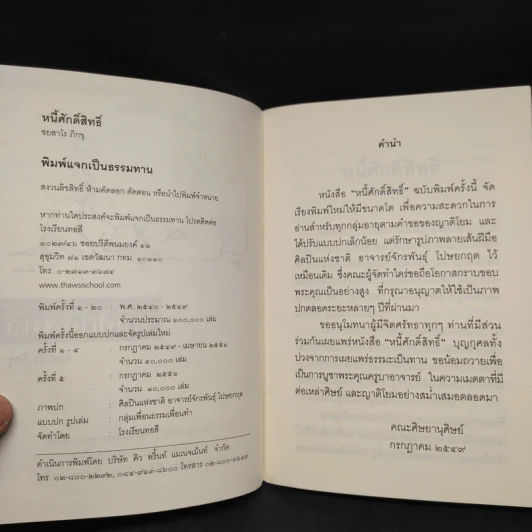 หนี้ศักดิ์สิทธิ์
ชยสาโร ภิกขุ
พิมพ์แจกเป็นธรรมทาน
สงวนลิขสิทธิ์ ห้ามคัดลอก ตัดตอน หรือนำไปพิมพ์จำหน่าย
หากท่านใดประสงค์จะพิมพ์แจกเป็นธรรมทาน โปรดติดต่อ
โรงเรียนทอสี
๑๐๒๓/๔๖ ซอยปรีดีพนมยงค์ ๔๑
สุขุมวิท ๗๑ เขตวัฒนา กทม. ๑๐๑๑๐
โทร. ๐-๒๗๑๓-๓๖๗๔
www.thawsischool.com
พิมพ์ครั้งที่ ๑ - ๒๐ : พ.ศ. ๒๕๔๐ - ๒๕๔๙
จำนวนประมาณ ๑๐๐,๐๐๐ เล่ม
พิมพ์ครั้งนี้ออกแบบปกและจัดรูปเล่มใหม่
ครั้งที่ ๑ - ๔ : กรกฎาคม ๒๕๔๙ - เมษายน ๒๕๕๑
จำนวน ๔๐,๐๐๐ เล่ม
ครั้งที่ ๕ : กรกฎาคม ๒๕๕๑
จำนวน ๑๐,๐๐๐ เล่ม
ภาพปก : ศิลปินแห่งชาติ อาจารย์จักรพันธุ์ โปษยกฤต
แบบปก รูปเล่ม : กลุ่มเพื่อนธรรมเพื่อนทำ
จัดทำโดย : โรงเรียนทอสี
ดำเนินการพิมพ์โดย บริษัท คิว พริ้นท์ แมเนจเม้นท์ จำกัด
โทร. ๐๒-๘๐๐-๒๒๙๒, ๐๘๔-๙๑๓-๘๖๐๐ โทรสาร ๐๒-๘๐๐-๓๖๔๙
คำนำ
หนังสือ “หนี้ศักดิ์สิทธิ์” ฉบับพิมพ์ครั้งนี้ จัด
เรียงพิมพ์ใหม่ให้มีขนาดโต เพื่อความสะดวกในการ
อ่านสำหรับทุกกลุ่มอายุตามคำขอของญาติโยม และ
ได้ปรับแบบปกเล็กน้อย แต่รักษารูปภาพลายเส้นฝีมือ
ศิลปินแห่งชาติ อาจารย์จักรพันธุ์ โปษยกฤต ไว้
เหมือนเดิม ซึ่งคณะผู้จัดทำใคร่ขอถือโอกาสกราบขอบ
พระคุณเป็นอย่างสูง ที่กรุณาอนุญาตให้ใช้เป็นภาพ
ปกตลอดระยะหลายๆ ปีที่ผ่านมา
ขออนุโมทนาผู้มีจิตศรัทธาทุกๆ ท่านที่มีส่วน
ร่วมกันเผยแพร่หนังสือ “หนี้ศักดิ์สิทธิ์” บุญกุศลทั้ง
ปวงจากการเผยแพร่ธรรมะเป็นทาน ขอน้อมถวายเพื่อ
เป็นการบูชาพระคุณครูบาอาจารย์ ในความเมตตาที่มี
ต่อเหล่าศิษย์ และญาติโยมอย่างสม่ำเสมอตลอดมา
คณะศิษยานุศิษย์
กรกฎาคม ๒๕๔๙